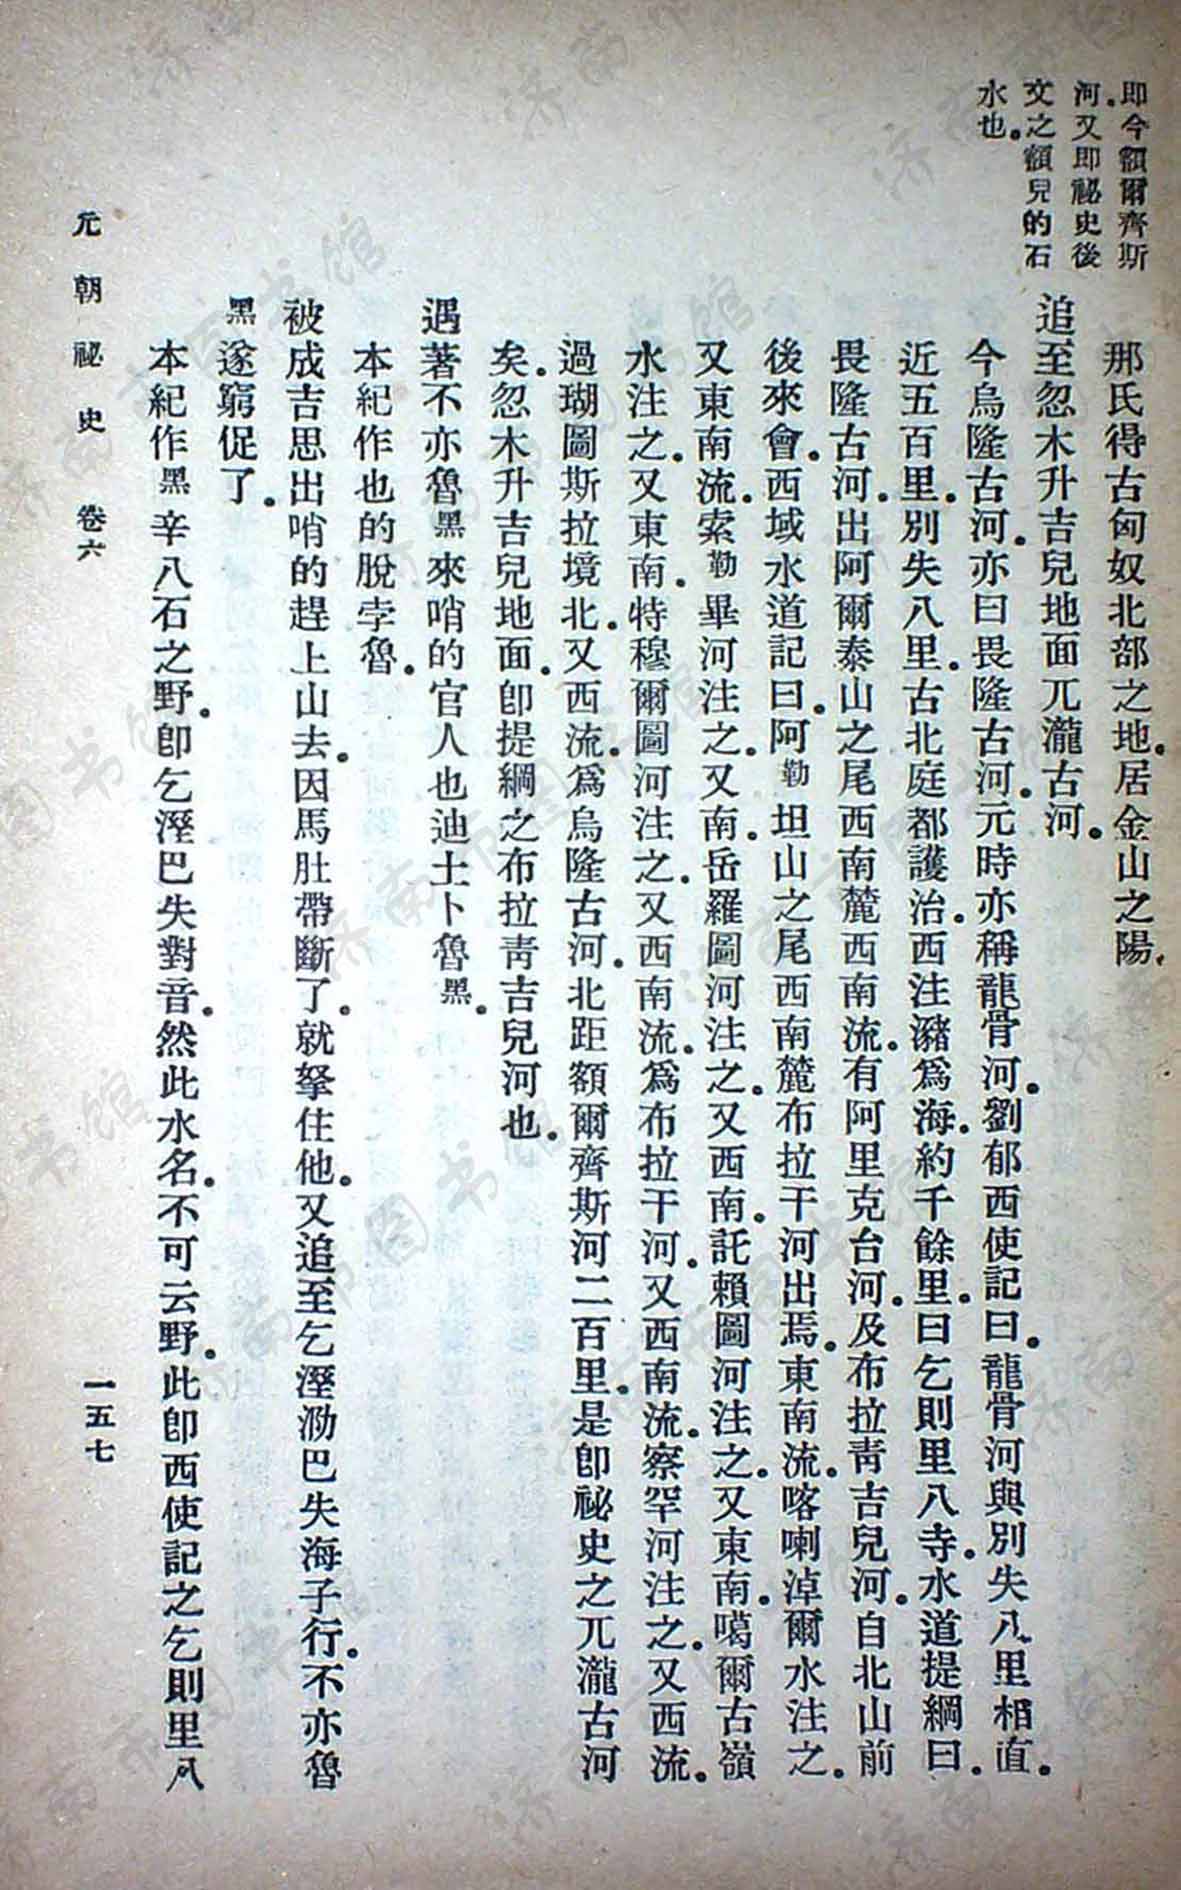 即今額爾齊斯
河。又即祕史後
文之額兒的石
水也。
那氏得古匈奴北部之地。居金山之陽。
追至忽木升吉兒地面兀瀧古河。
今烏隆古河。亦曰畏隆古河。元時亦稱龍骨河。劉郁西使記曰。龍骨河與別失八里相直。
近五百里。別失八里。古北庭都護治。西注瀦爲海。約千餘里。曰乞則里八寺。水道提綱曰。
畏隆古河。出阿爾泰山之尾西南麓西南流。有阿里克台河。及布拉靑吉兒河。自北山前
後來會。西域水道記曰。阿勒坦山之尾西南麓布拉干河出焉。東南流。喀喇淖爾水注之。
又東南流。索勒畢河注之。又南。岳羅圖河注之。又西南。託賴圖河注之。又東南。噶爾古嶺
水注之。又東南。特穆爾圖河注之。又西南流。爲布拉干河。又西南流。察罕河注之。又西流。
過瑚圖斯拉境北。又西流。爲烏隆古河。北距額爾齊斯河二百里。是卽祕史之兀瀧古河
矣。忽木升吉兒地面。卽提綱之布拉靑吉兒河也。
遇著不亦魯黑來哨的官人也迪土卜魯黑。
本紀作也的脫孛魯。
被成吉思出哨的趕上山去。因馬肚帶斷了。就拏住他。又追至乞溼泐巴失海子行。不亦魯
黑遂窮促了。
本紀作黑辛八石之野。卽乞溼巴失對音。然此水名。不可云野。此卽西使記之乞則里八
元朝祕史 卷六
一五七